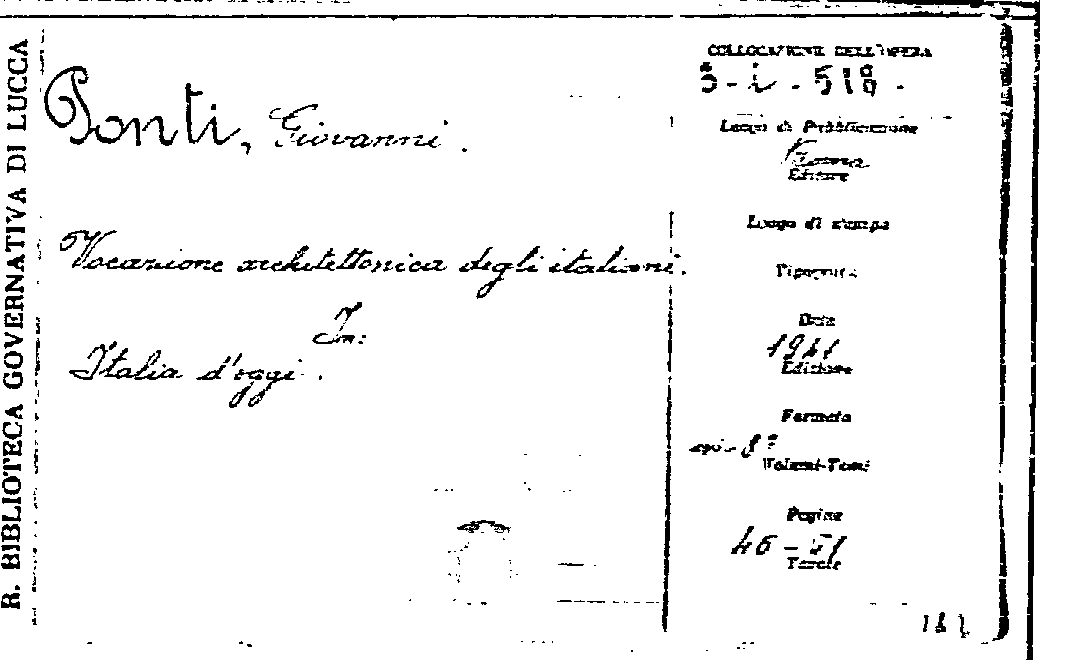 R. BIBLIOTECA GOVERNATIVA DI LUCCA
Ponti, Giovanni.
Vocazione architettonica degli italiani.
In:
Italia d'oggi.
COLLOCAZIONE DELL'OPERA
3-i-518.
Luogo di Pubblicazione
Roma
Editore
Luogo di stampa
Tipografia
Data
1941
Edizione
Formato
8°
Volumi-Tomi
Pagine
46-51
Tavole